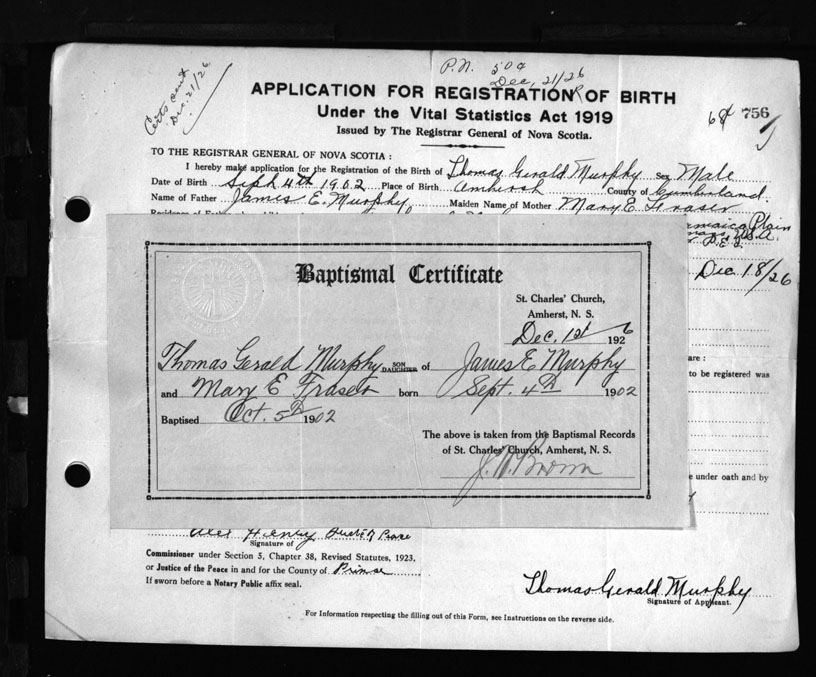 P.N. 50¢
Dec, 21/26
Certs out
Dec. 21/26
APPLICATION FOR REGISTRATION OF BIRTH
Under the Vital Statistics Act 1919
68 756
Issued by The Registrar General of Nova Scotia.
TO THE REGISTRAR GENERAL OF NOVA SCOTIA :
I hereby make application for the Registration of the Birth of Thomas Gerald Murphy sex Male
Date of Birth Sept 4th 1902 Place of Birth Amherst County of Cumberland
Name of Father James E. Murphy Maiden Name of Mother Mary E Fraser
Residence of Father
Plain
U.S.A.
P.E.I.
Dec 18/26
Baptismal Certificate
St. Charles' Church,
Amherst, N. S.
Dec. 1st 1926
Thomas Gerald Murphy SON DAUGHTER of James E Murphy
and Mary E Fraser born Sept. 4th 1902
Baptised Oct. 5th 1902
The above is taken from the Baptismal Records
of St. Charles' Church, Amherst, N. S.
are :
to be registered was
under oath and by
Alex Henry
Signature of
Commissioner under Section 5, Chapter 38, Revised Statutes, 1923,
or Justice of the Peace in and for the County of Prince
If sworn before a Notary Public affix seal.
Thomas Gerald Murphy
Signature of Applicant.
For Information respecting the filling out of this Form, see Instructions on the reverse side.